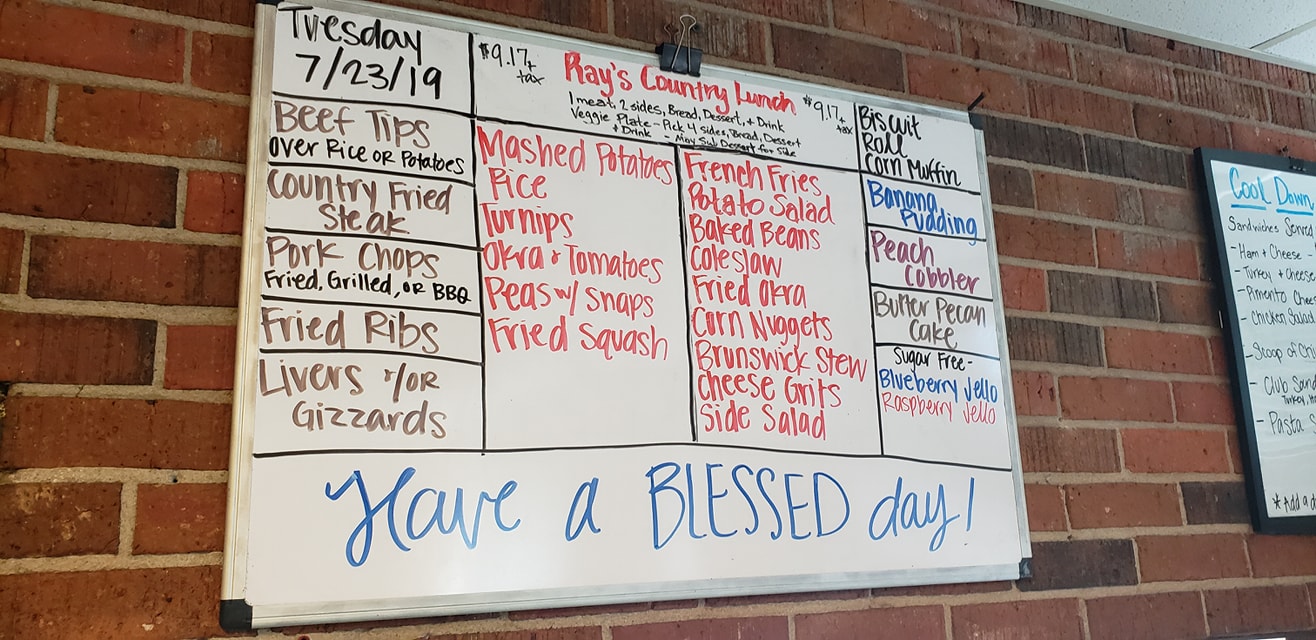 Tuesday
7/23/19
$9.17+
tax
Ray's Country Lunch
$9.17+
tax
1 meat, 2 sides, Bread, Dessert, + Drink
Veggie Plate - Pick 4 sides, Bread, Dessert
+ Drink - May Sub Dessert for Side
Beef Tips
over Rice or Potatoes
Country Fried
Steak
Pork Chops
Fried, Grilled, or BBQ
Fried Ribs
Livers +/or
Gizzards
Mashed Potatoes
Rice
Turnips
Okra + Tomatoes
Peas w/ Snaps
Fried Squash
French Fries
Potato Salad
Baked Beans
Coleslaw
Fried Okra
Corn Nuggets
Brunswick Stew
Cheese Grits
Side Salad
Biscuit
Roll
Corn Muffin
Banana
Pudding
Peach
Cobbler
Butter Pecan
Cake
Sugar Free-
Blueberry Jello
Raspberry Jello
Have a BLESSED day!
Cool Down
Sandwiches Served
- Ham + Cheese -
- Turkey + Cheese
- Pimento
- Chicken Salad
- Scoop of
- Club
Turkey,
- Pasta
* Add a